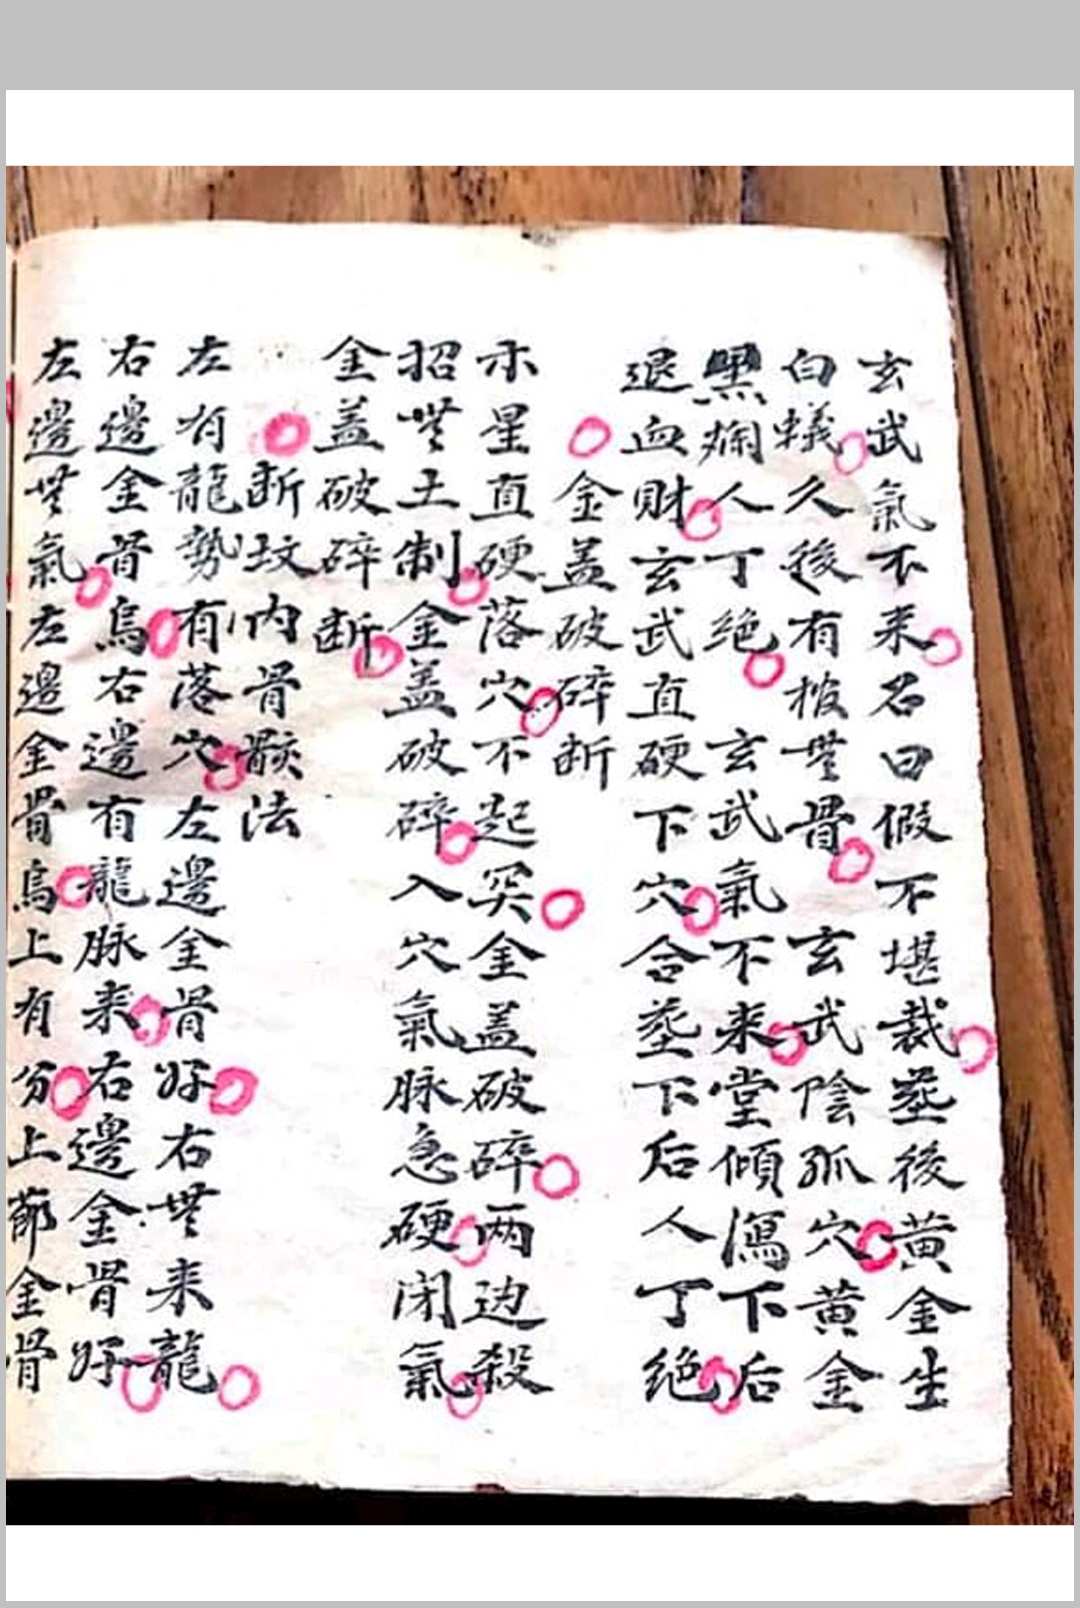 玄武氣不来名曰假不堪裁塟後黄金生
白蟻久後有棺無骨玄武陰孤穴黄金
黑爛人丁绝玄武氣不来堂傾瀉下后
退血财玄武直硬下穴合塟下后人丁绝
金盖破碎断
木星直硬落穴不起突金盖破碎两边殺
招無土制金盖破碎入穴氣脉急硬闭氣
金盖破碎断
断坟内骨骸法
左有龍勢有落穴左邊金骨好右無来龍
右邊金骨烏右邊有龍脉来右邊金骨好
左邊無氣左邊金骨烏上有分上節金骨